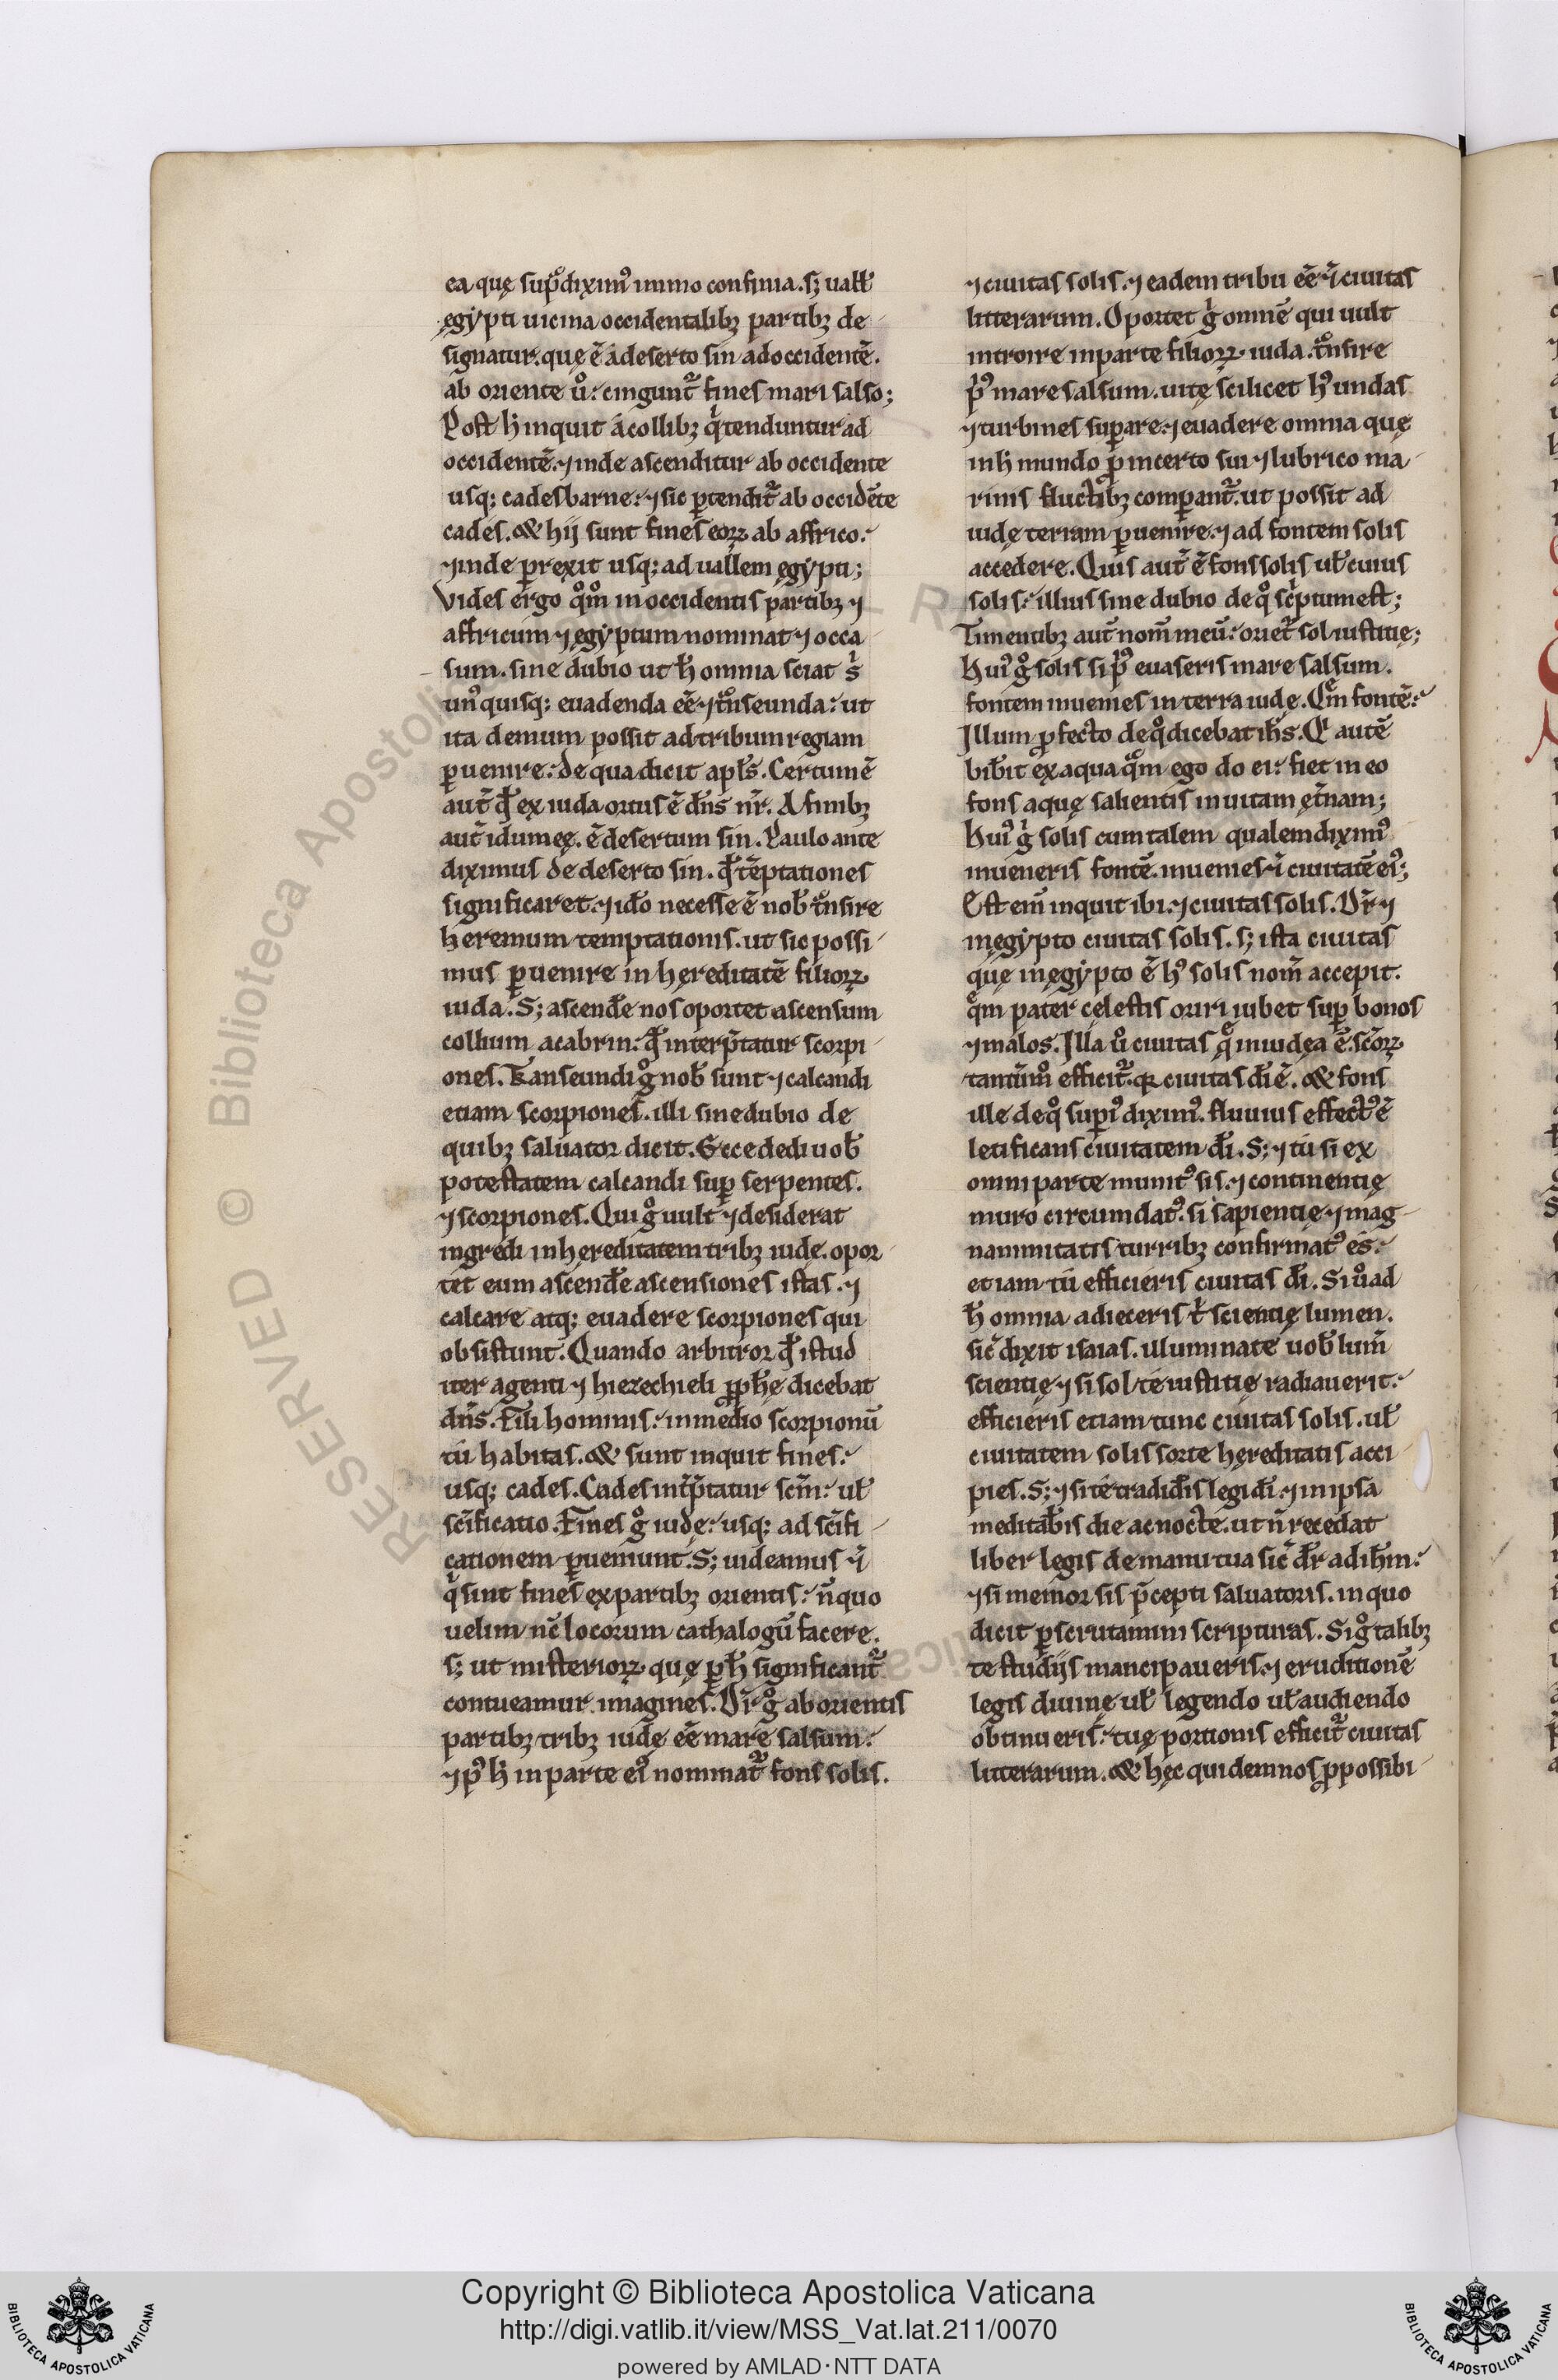 ea quę sup̄ᵒdiximꝰ immo confinia. sꝫ uałł
ęgẏpti uicina occidentalibꝫ partibꝫ de
signatur. quę ē a deserto sin ad occidentē.
ab oriente ůͦ: cingunt᷑ fines mari salso;
Post h̄ inquit a collibꝫ qͥ tenduntur ad
occidentē. ⁊ inde ascenditur ab occidente
usqꝫ cadesbarne. ⁊ sic ꝑtendit᷑ ab occidēte
cades. & hij sunt fines eoꝝ ab affrico.
⁊ inde ꝑrexit usqꝫ ad uallem ęgẏpti;
Vides ergo qͦmͦ in occidentis partibꝫ ⁊
affricum ⁊ ęgẏptum nominat ⁊ occa
sum. sine dubio ut h̄ omnia sciat sͥ
unꝰquisqꝫ euadenda eē ⁊ tͣnseunda: ut
ita demum possit ad tribum regiam
ꝑuenire: de qua dicit apłs. Certum ē
aut̄ qđ ex iuda ortus ē dn̄s nr̄. A finibꝫ
aut̄ idumeę. ē desertum sin. Paulo ante
diximus de deserto sin. qđ tēptationes
significaret. ⁊ iđo necesse ē nob̄ tͣnsire
heremum temptationis. ut sic possi
mus ꝑuenire in hereditatē filioꝝ
iuda. Sꝫ ascendẽ nos oportet ascensum
collium acabrin: qđ interp̄tatur scorpi
ones. Transeundi gͦ nob̄ sunt ⁊ calcandi
etiam scorpiones. illi sine dubio de
quibꝫ saluator dicit. Ecce dedi uob̄
potestatem calcandi suꝑ serpentes.
⁊ scorpiones. Qui gͦ uult ⁊ desiderat
ingredi in hereditatem tribꝫ iudę. opor
tet eum ascendẽ ascensiones istas. ⁊
calcare atqꝫ euadere scorpiones qui
obsistunt. Quando arbitror qđ istud
iter agenti ⁊ hiezechieli ꝓph̄ę dicebat
dn̄s. Fili hominis: in medio scorpionū
tu habitas. & sunt inquit fines:
usqꝫ cades. Cades int̄p̄tatur sc̄m: uł
sc̄ificatio. Fines gͦ iudę: usqꝫ ad sc̄ifi
cationem ꝑueniunt. Sꝫ uideamus ⁊ͥ
qͥ sint fines ex partibꝫ orientis: n̄ quo
uelim nc̄ locorum cathalogū facere.
sꝫ ut misterioꝝ quę ꝑ h̄ significant᷑
contueamur imagines. Vr̄ gͦ ab orientis
partibꝫ tribꝫ iudę eē mare salsum:
⁊ pꝰ h̄ in parte eiꝰ nominat᷑ fons solis.
⁊ ciuitas solis. ⁊ eadem tribu eē ⁊ͥ ciuitas
litterarum. Oportet gͥ omnē qui uult
introire in parte filioꝝ iuda. tͣnsire
pͥꝰ mare salsum. uitę scilicet hꝰ undas
⁊ turbines suꝑare. ⁊ euadere omnia quę
in h̄ mundo ꝓ incerto sui ⁊ lubrico ma
rinis fluctibꝫ comꝑant᷑. ut possit ad
iudę terram ꝑuenire. ⁊ ad fontem solis
accedere. Quis aut̄ ē fons solis uł cuius
solis: illius sine dubio de qͦ scͥptum est;
Timentibꝫ aut̄ nom̄ meū: oriet᷑ sol iustitię;
Huiꝰ gͦ solis si pͥꝰ euaseris mare salsum.
fontem inuenies in terra iudę. Qͤm fontē:
Illum ꝓfecto de qͦ dicebat ih̄s. Qͥ autē
bib̄it ex aqua qͣm ego do ei: fiet in eo
fons aquę salientis in uitam ęt̄nam;
Huiꝰ gͥ solis cum talem qualem diximꝰ
inueneris fontē. inuenies ⁊ͥ ciuitatē eiꝰ;
Est em̄ inquit ibi. ⁊ ciuitas solis. Vr̄ ⁊
in ęgẏpto ciuitas solis. sꝫ ista ciuitas
que in ęgẏpto ē hꝰ solis nom̄ accepit.
qͤm pater celestis oriri iubet suꝑ bonos
⁊ malos. Illa ůͦ ciuitas qͤ in iudea ē. sc̄oꝝ
tantūmͦ efficit᷑. qꝛ ciuitas dī ē. & fons
ille de qͦ suꝑiꝰ diximꝰ. fluuius effectꝰ ē
letificans ciuitatem dī. Sꝫ ⁊ tu si ex
omni parte munitꝰ sis. ⁊ continentię
muro circumdatꝰ. si sapientię ⁊ mag
nanimitatis turribꝫ confirmatꝰ es:
etiam tu efficieris ciuitas dī. Si ůͦ ad
h̄ omnia adieceris tͥ scientię lumen.
sic̄ dixit isaias. illuminate uob̄ lum̄
scientię ⁊ si sol te iustitię radiauerit:
efficieris etiam tunc ciuitas solis. uł
ciuitatem solis sorte hereditatis acci
pies. Sꝫ ⁊ si te tradidẽis legi dī. ⁊ in ipsa
meditab̄is die ac nocte. ut n̄ recedat
liber legis de manu tua sic̄ dr̄ ad ih̄m:
⁊ si memor sis p̄cepti saluatoris. in quo
dicit ꝑscrutamini scripturas. Si gͦ talibꝫ
te studijs mancipaueris. ⁊ eruditionē
legis diuinę uł legendo uł audiendo
obtinueris: tuę portionis efficit᷑ ciuitas
litterarum. & hęc quidem nos ꝓ possibi
Copyright © Biblioteca Apostolica Vaticana
http://digi.vatlib.it/view/MSS_Vat.lat.211/0070
powered by AMLAD·NTT DATA